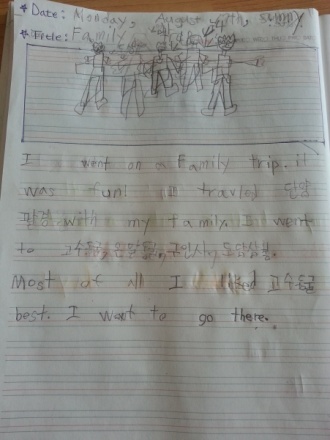 * Date: Monday, August 17th, sunny
* Title: Family
I went on a Family trip. it
was fun! I travled 단양
팔경 with my family. I went
to 고수동굴, 온달동굴, 구인사, 도담삼봉.
Most of all I liked 고수동굴
best. I want to go there.